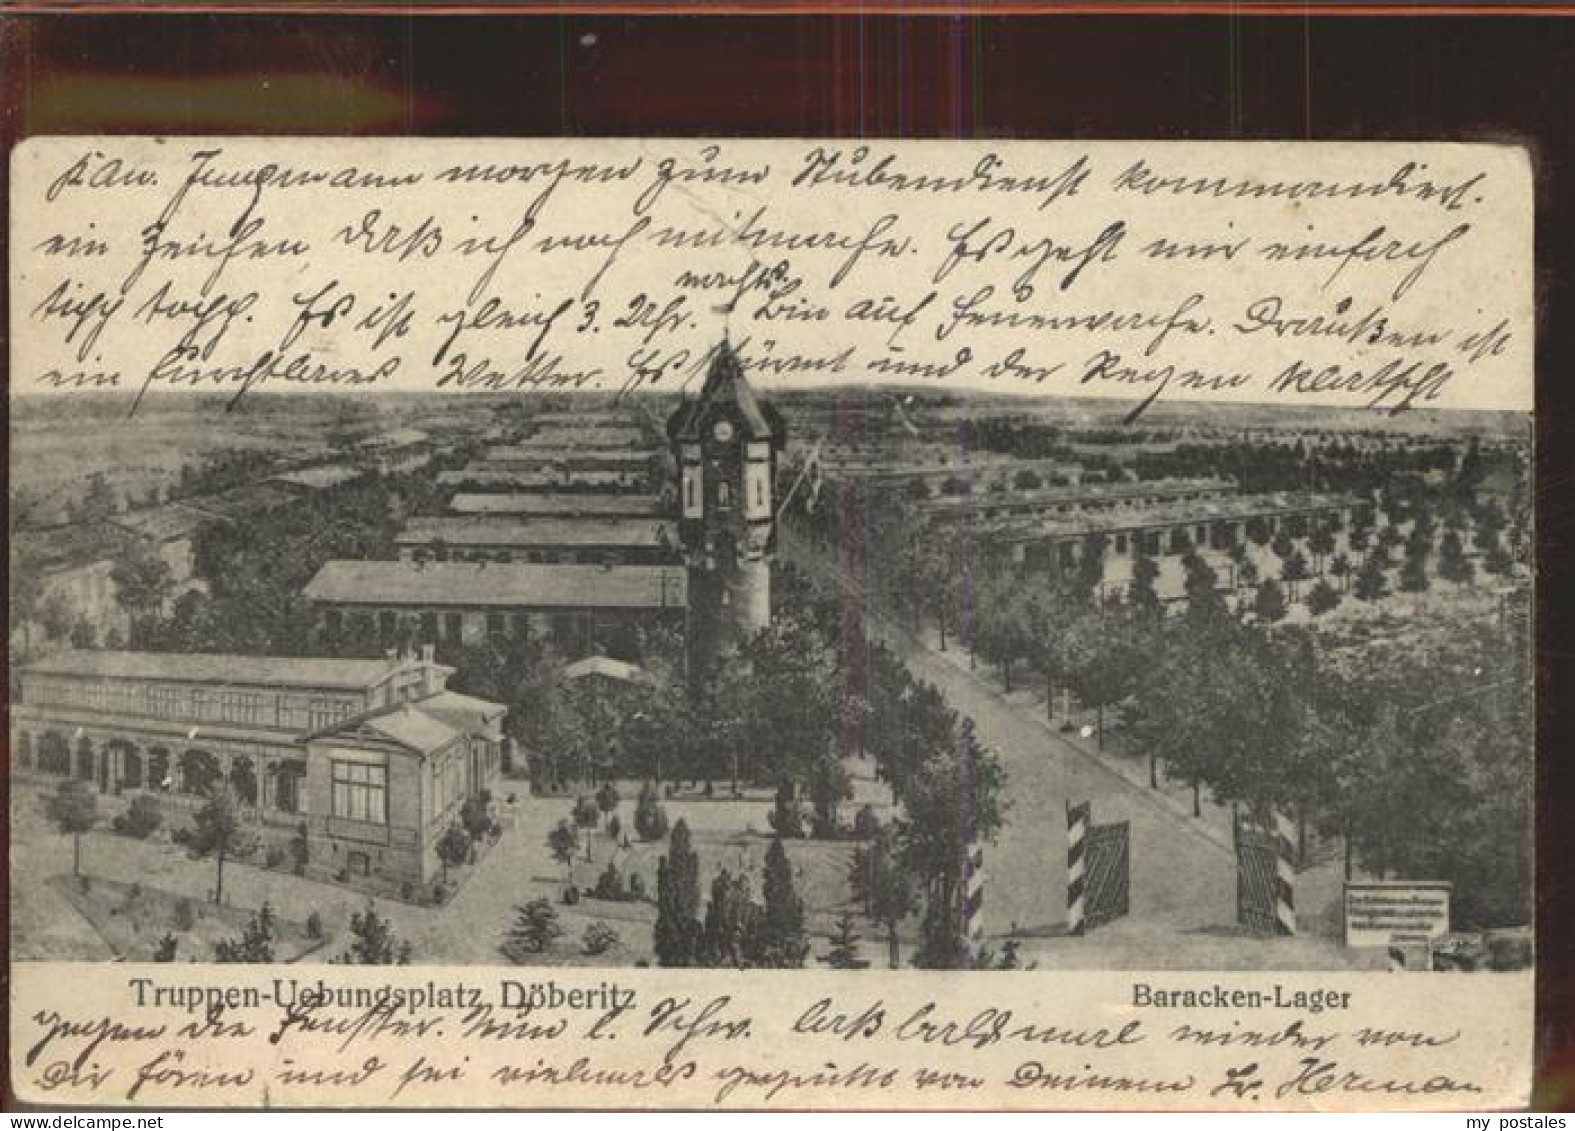 Kan. Jungmann morgen zum Stubendienst kommandiert.
ein Zeichen, daß ich noch mitmache. Es geht mir einfach
tipp topp. Es ist gleich 3. Uhr. nachts. Bin auf Feuerwache. Draußen ist
ein furchtbares Wetter. Es stürmt und der Regen klatscht
Truppen-Uebungsplatz Döberitz
Baracken-Lager
gegen die Fenster. Nun l. Schw. laß bald mal wieder von
Dir hören und sei vielmals gegrüßt von Deinem Br. Herman
my postales